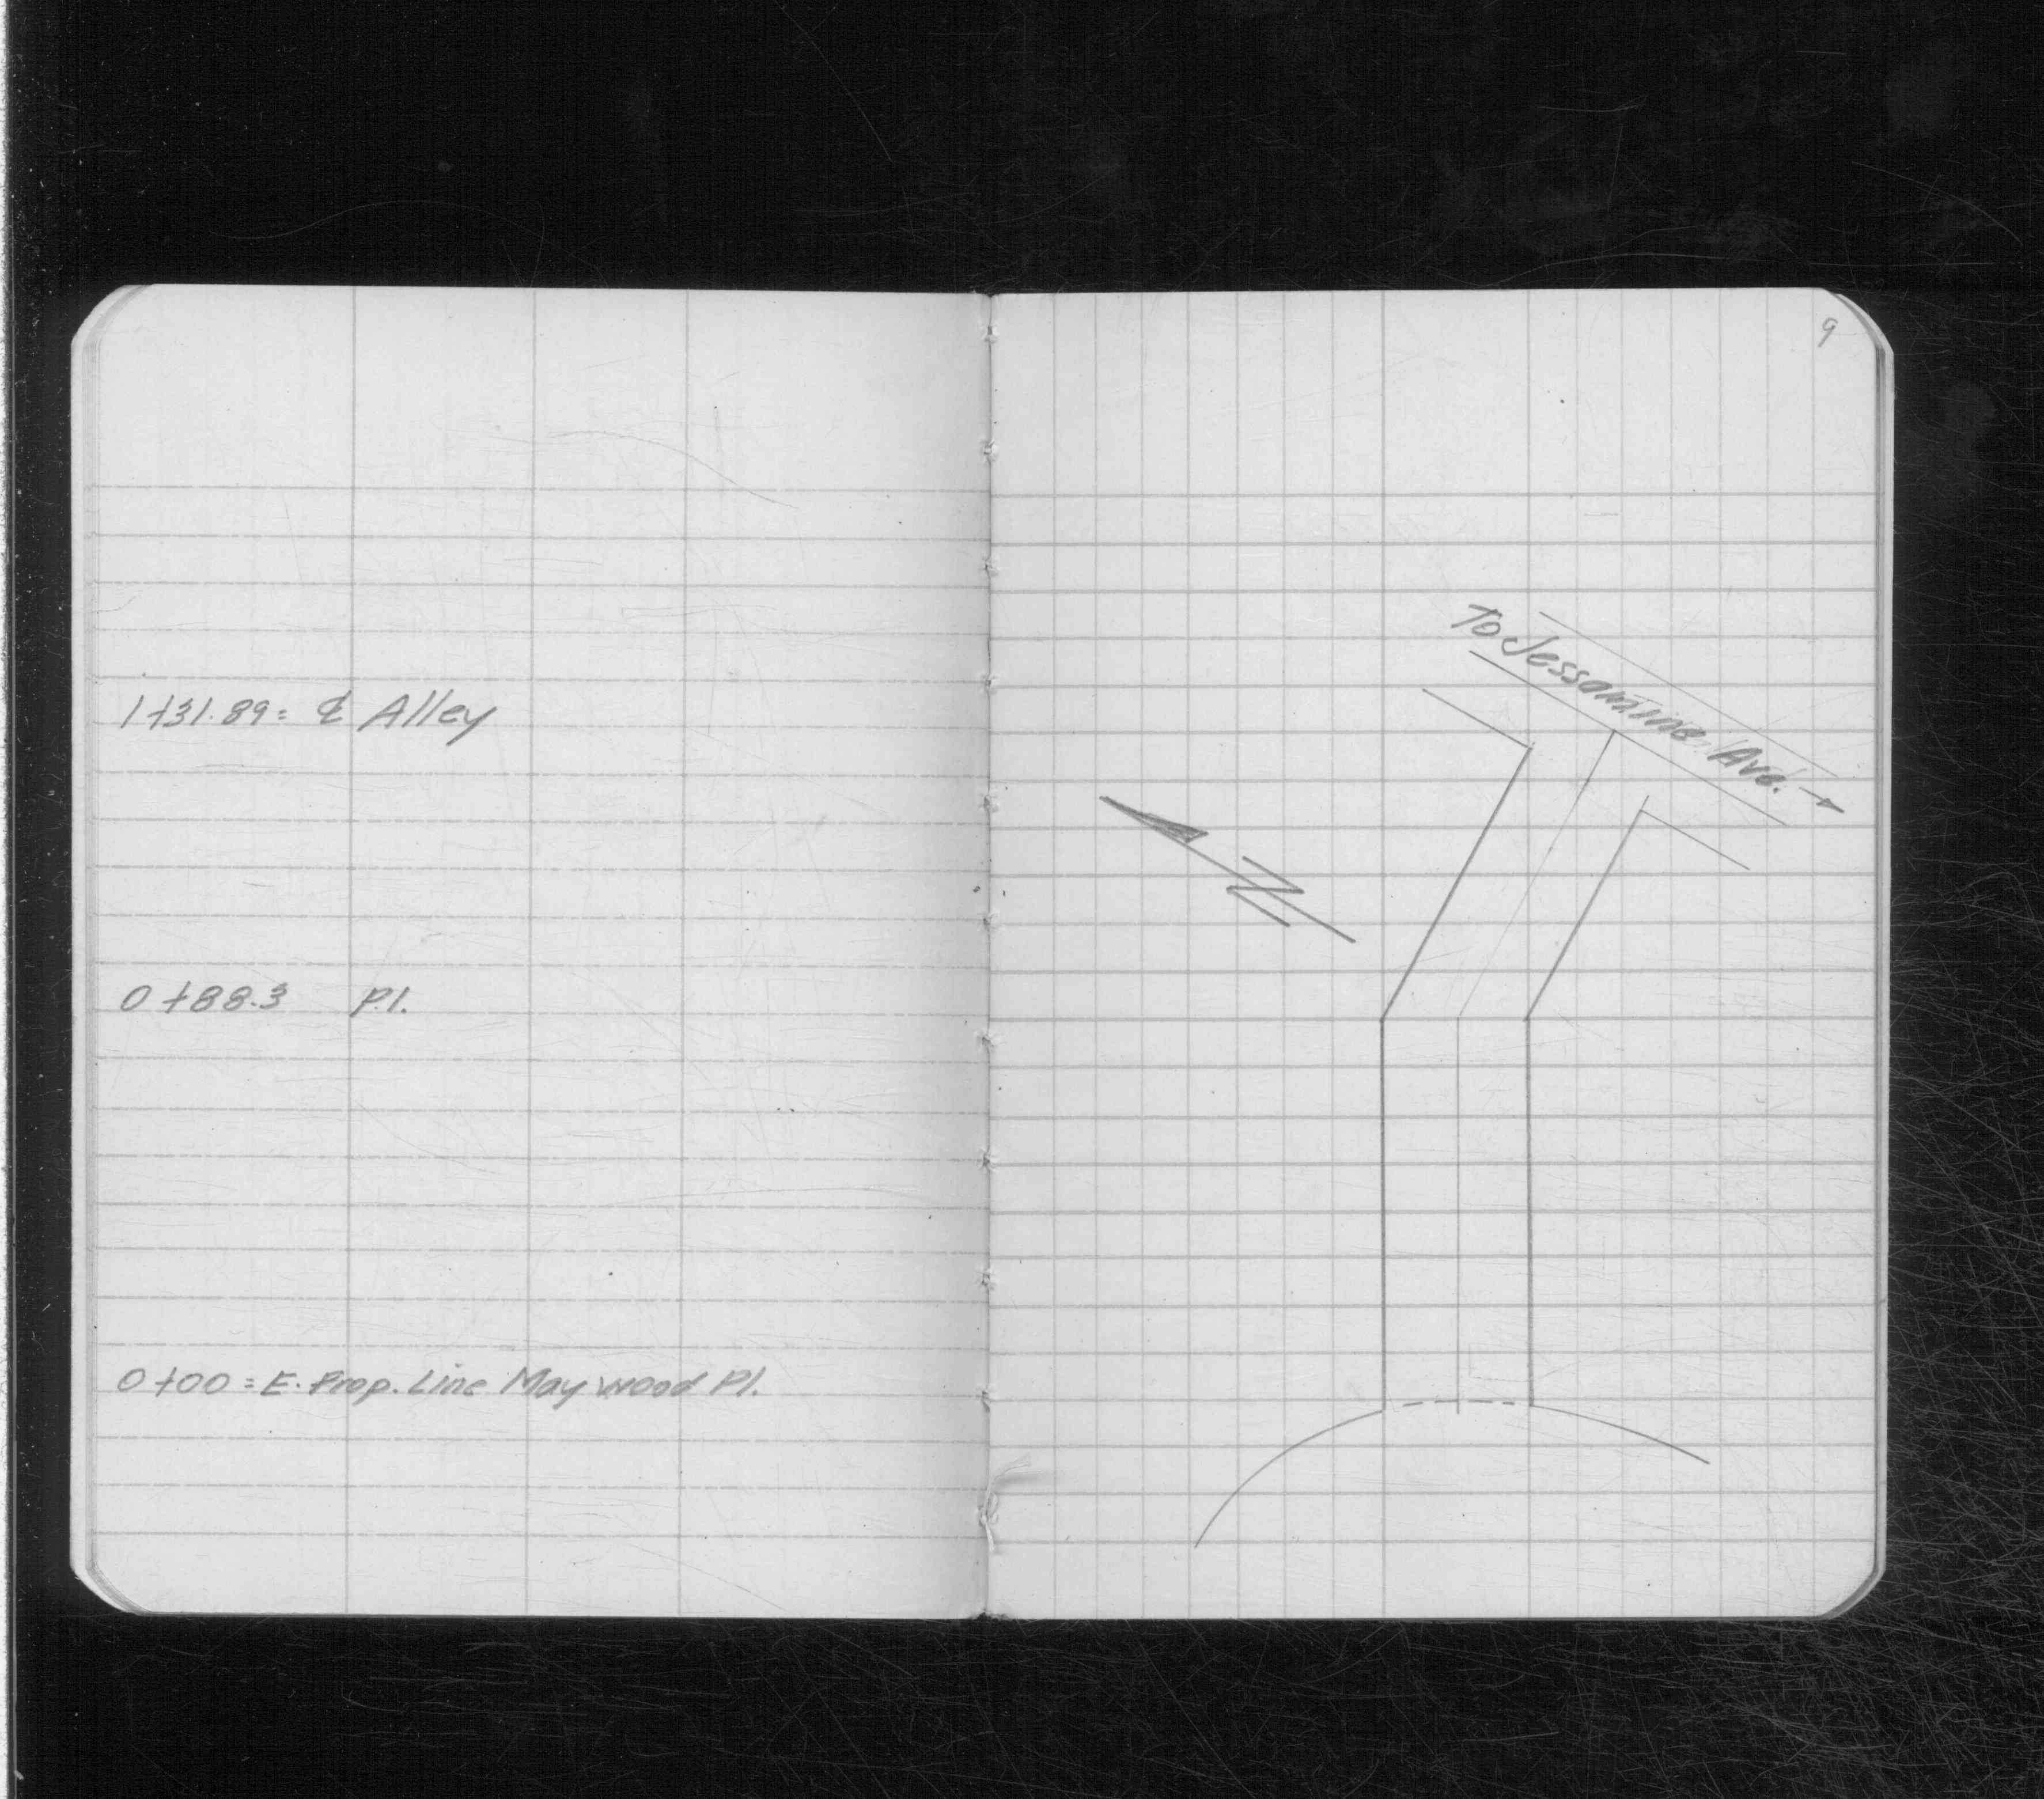 1+31.89 = ℄ Alley
0+88.3 P.I.
0+00 = E. Prop. Line Maywood Pl.
9
To Jessamine Ave. →
N